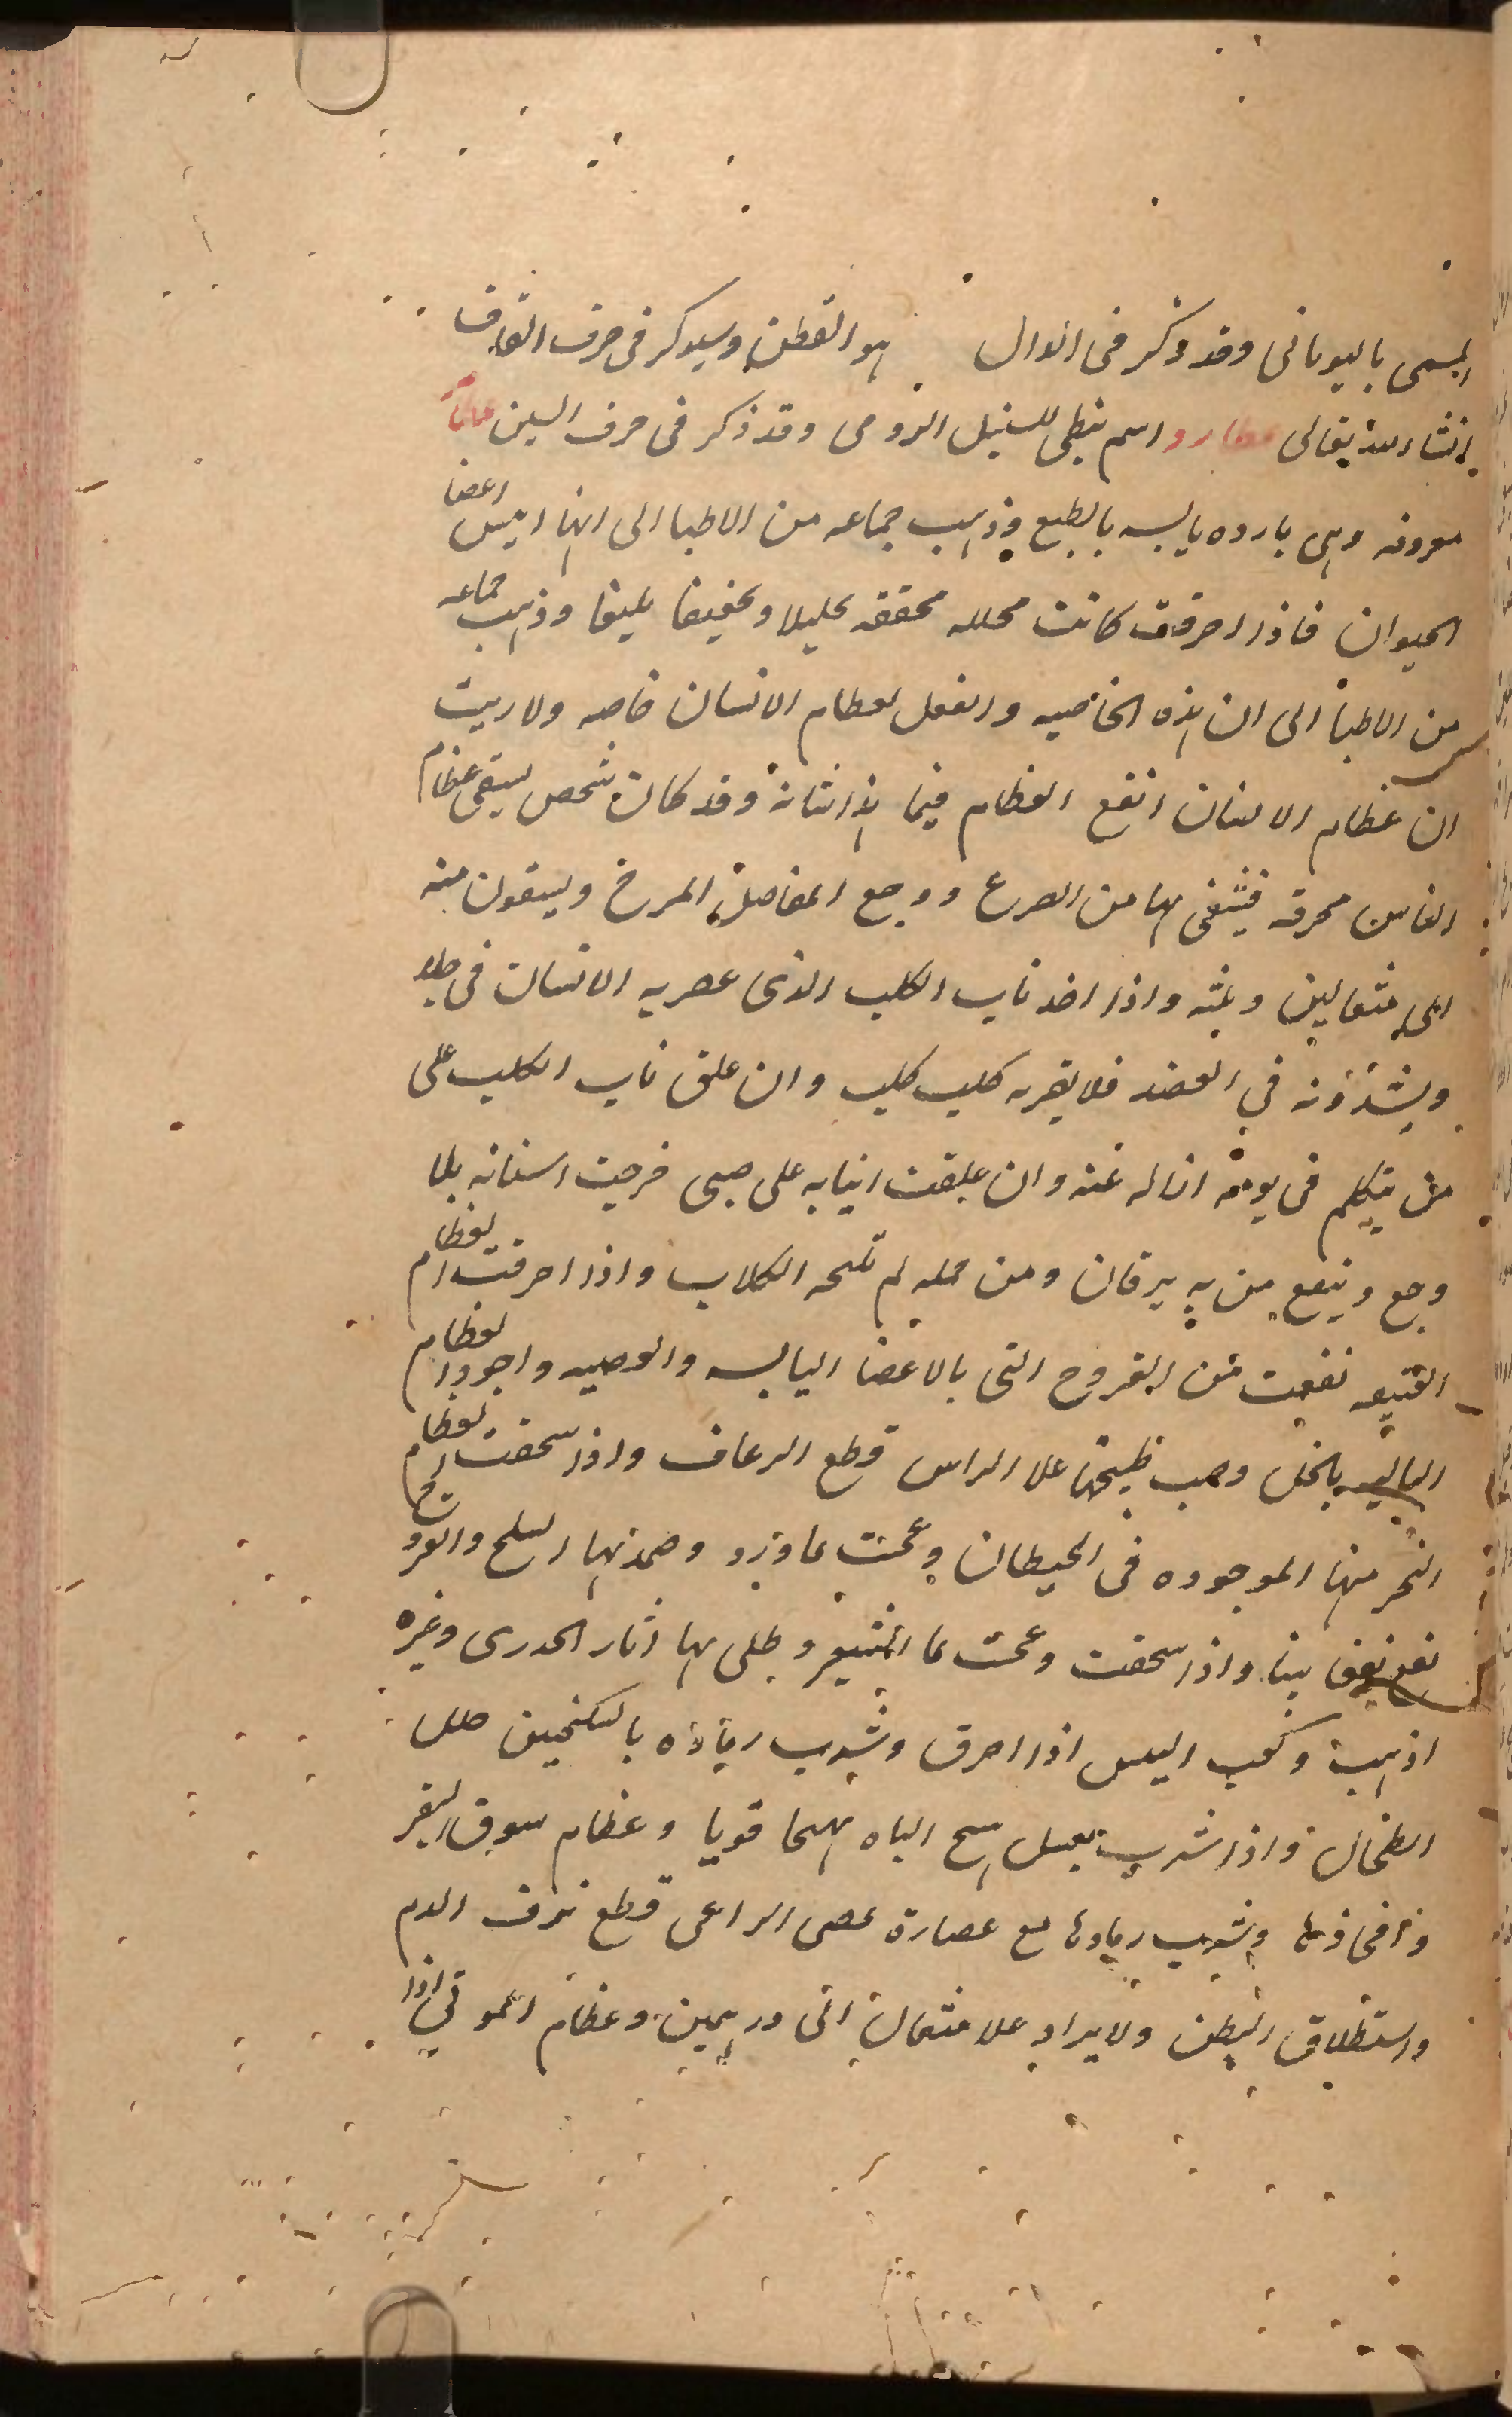 المسمى باليونانى وقد ذكر فى الدال هو القطن وسيذكر فى حرف القاف
انشاء الله تعالى عطارد اسم نبطى للسنبل الرومى وقد ذكر فى حرف السين عظام
معروفه وهى بارده يابسه بالطبع وذهب جماعه من الاطبا الى انها ايبس اعضا
الحيوان فاذا احرقت كانت محلله مجففه تحليلا وتجفيفا بليغا وذهب جماعه
من الاطبا الى ان هذه الخاصيه والفعل لعظام الانسان خاصه ولا ريب
ان عظام الانسان انفع العظام فيما هذا شانه وقد كان شخص يسقى عظام
الناس محرقه فيشفى بها من الصرع ووجع المفاصل المرخ ويسقون منه
الى مثقالين وثلثه واذا اخذ ناب الكلب الذى عض به الانسان فى جلد
ويشدونه فى العضد فلا يقربه كلب كلب وان علق ناب الكلب على
من يتكلم فى نومه ازاله عنه وان علقت انيابه على صبى خرجت اسنانه بلا
وجع وينفع من به يرقان ومن حمله لم تنبحه الكلاب واذا احرقت العظام
العتيقه نفعت من القروح التى بالاعضا اليابسه والعصبيه واجودا لعظام
الباليه بالخل وصب طبيخها علا الراس قطع الرعاف واذا سحقت العظام
النخر منها الموجوده فى الحيطان وعجنت بماورد وضمد بها السلع والقروح
نفع نفعا بينا واذا سحقت وعجنت بما الشعير وطلى بها اثار الجدرى وغيره
اذهبت وكعب التيس اذا احرق وشرب رماده بالسكنجبين حلل
الطحال واذا شرب بعسل هيج الباه تهيجا قويا وعظام سوق البقر
وافخاذها وشرب رمادها مع عصارة عصى الراعى قطع نزف الدم
واستطلاق البطن ولا يزاد علا مثقال الى درهمين وعظام الموتى اذا